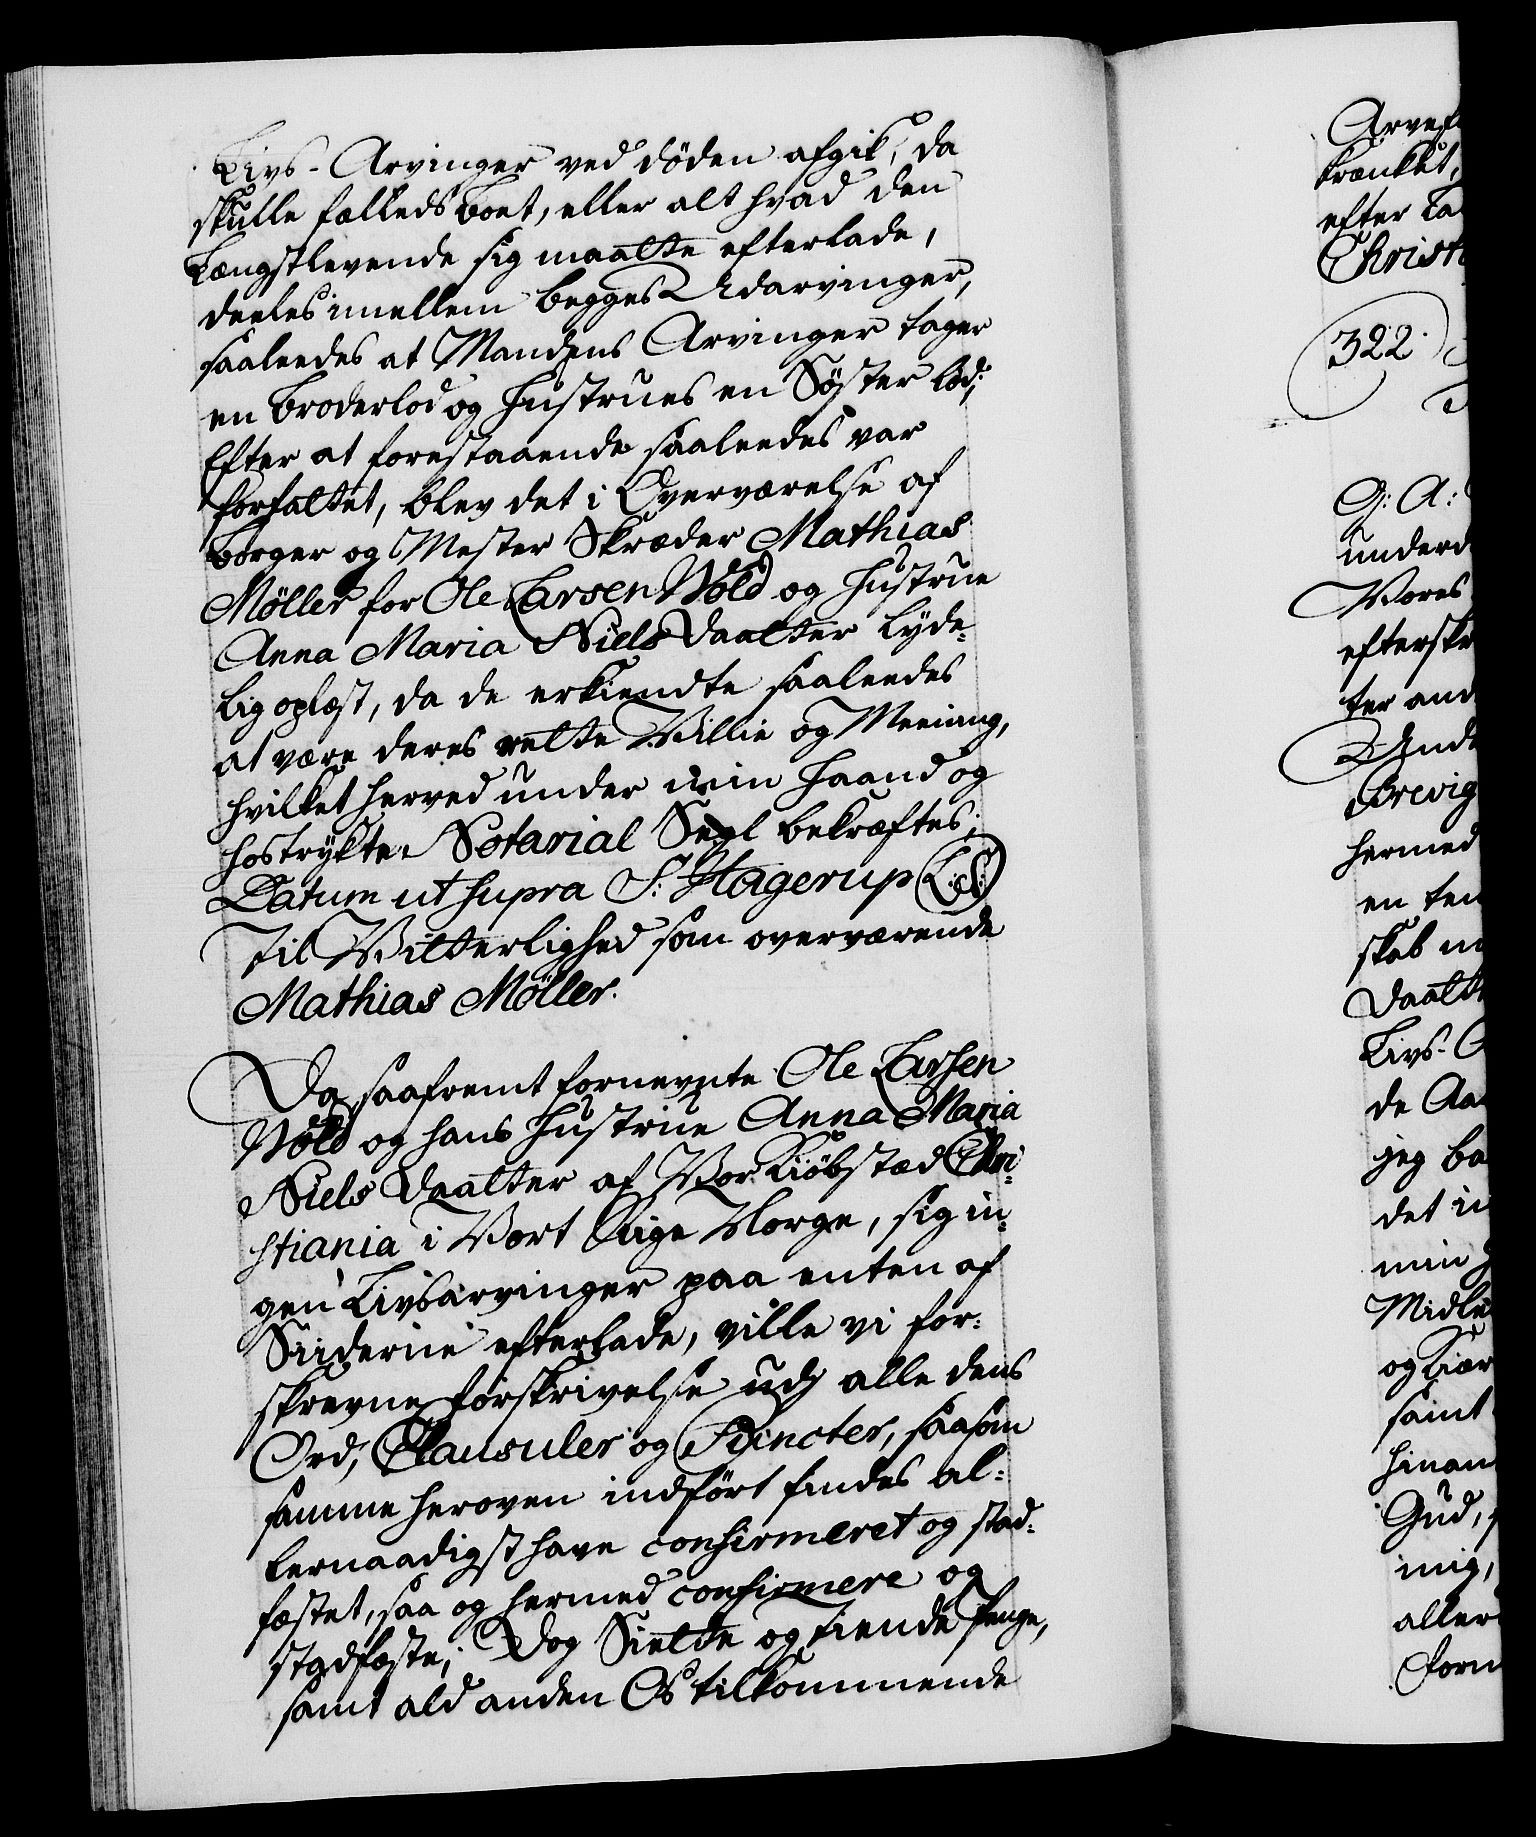 Livs-Arvinger ved döden afgik, da
skulle fælleds Boet, eller alt hvad den
Længstlevende sig maatte efterlade,
deeles imellem begges Udarvinger,
saaleedes at Mandens Arvinger tager
en Broderlod og Hustrues en Søster lod;
Efter at forestaaende saaleedes var
forfattet, blev det i Overværelse af
Borger og Mester Skræder Mathias
Möller for Ole Larsen Wold og Hustrue
Anna Maria Niels Daatter lyde-
lig oplæst, da de erkiendte saaleedes
at være deres rette Villie og Meening,
hvilket herved under min Haand og
hostrykte Notarial Segl bekræftes;
Datum ut supra S: Hagerup (L.S.)
Til Vitterlighed som overværende
Mathias Möller.
Da saafremt fornevnte Ole Larsen
Wold og hans Hustrue Anna Maria
Niels Daatter af Vor Kiöbstæd Chri-
stiania i Vort Rige Norge, sig in-
gen Livsarvinger paa enten af
Siiderne efterlade, ville vi for-
skrevne forskrivelse udj alle dens
Ord, Clausuler og Puncter, saasom
samme heroven indfört findes al-
lernaadigst have confirmeret og stad-
fæstet, saa og hermed confirmere og
stadfæste; Dog Siette og tiende Penge,
samt ald anden Os tilkommende
Arvef
krænket,
efter La
Christ
322.
G: A:
underd
Vores
efterskr
ter and
Unde
Brevig
hermed
en ten
skab m
Daatt
Livs-A
de Aa
jeg ba
det in
min H
Midle
og Kiær
samt
hinan
Gud, s
mig,
aller
forn